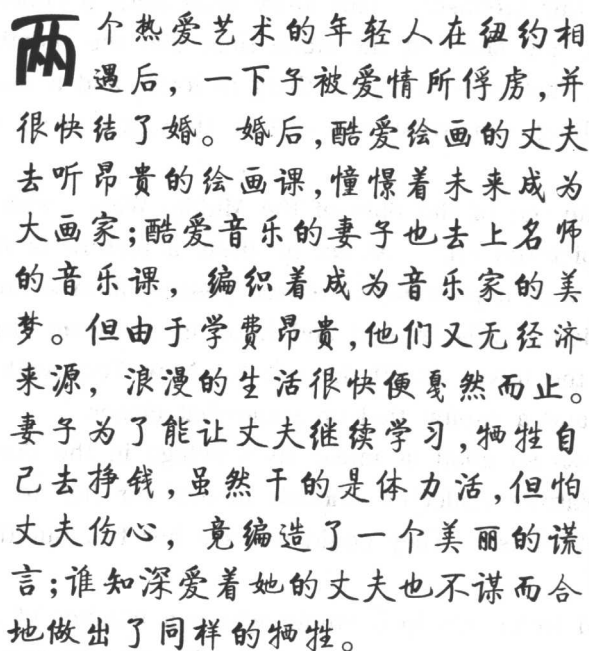 两个热爱艺术的年轻人在纽约相
遇后，一下子被爱情所俘虏，并
很快结了婚。婚后，酷爱绘画的丈夫
去听昂贵的绘画课，憧憬着未来成为
大画家；酷爱音乐的妻子也去上名师
的音乐课，编织着成为音乐家的美
梦。但由于学费昂贵，他们又无经济
来源，浪漫的生活很快便戛然而止。
妻子为了能让丈夫继续学习，牺牲自
己去挣钱，虽然干的是体力活，但怕
丈夫伤心，竟编造了一个美丽的谎
言；谁知深爱着她的丈夫也不谋而合
地做出了同样的牺牲。